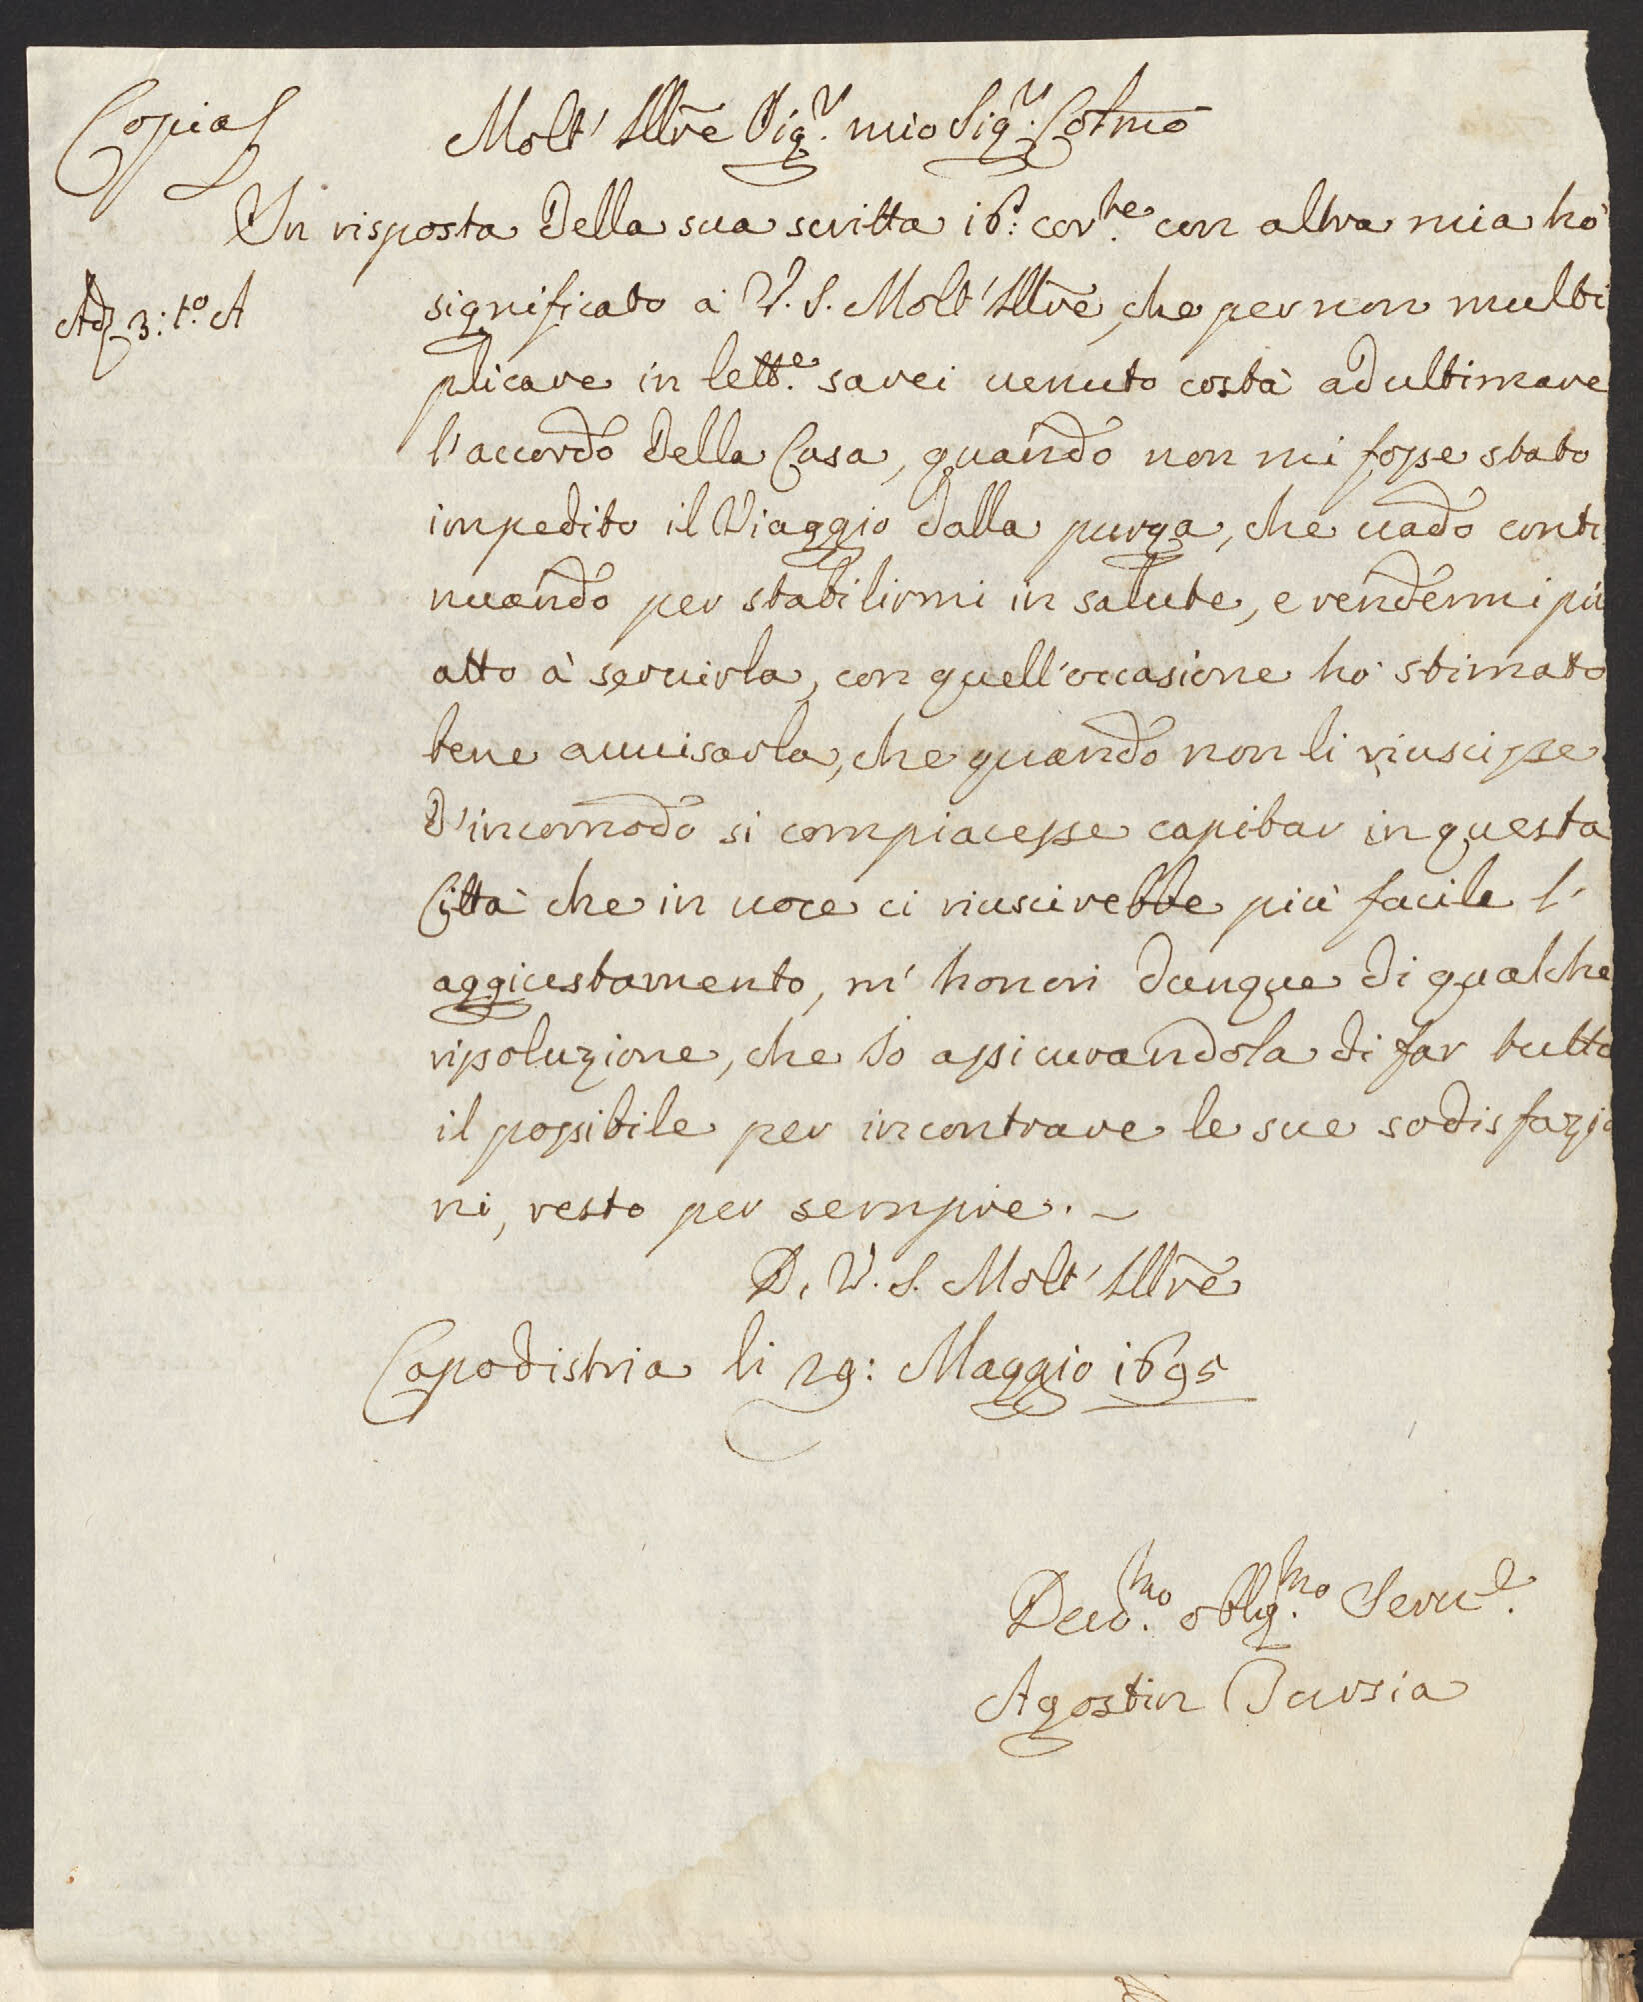 Copia
Molt' Illr̃e Sig.r mio Sig.r Colmo
In risposta della sua scritta 16: cor.te con altra mia hò
Ad 3: t.o A
significato à V. S. Molt' Illr̃e, che per non multi
plicare in lett.e sarei uenuto costà ad ultimare
l'accordo della Casa, quando non mi fosse stato
impedito il Viaggio dalla purga, che uado conti
nuando per stabilirmi in salute, e rendermi più
atto à seruirla, con quell'occasione hò stimato
bene auuisarla, che quando non li riuscisse
d'incomodo si compiacesse capitar in questa
Città che in uoce ci riuscirebbe più facile l'
aggiustamento, m' honori dunque di qualche
rissoluzione, che Io assicurandola di far tutto
il possibile per incontrare le sue sodisfazio
ni, resto per sempre. ~
D. V. S. Molt' Illr̃e
Capodistria li 29: Maggio 1695
Deuo.mo oblig.mo Seru.e
Agostin Tarsia